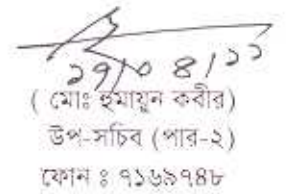 ২৭/০৪/১১
( মোঃ হুমায়ুন কবীর)
উপ-সচিব (পার-২)
ফোন ঃ ৭১৬৯৭৪৮